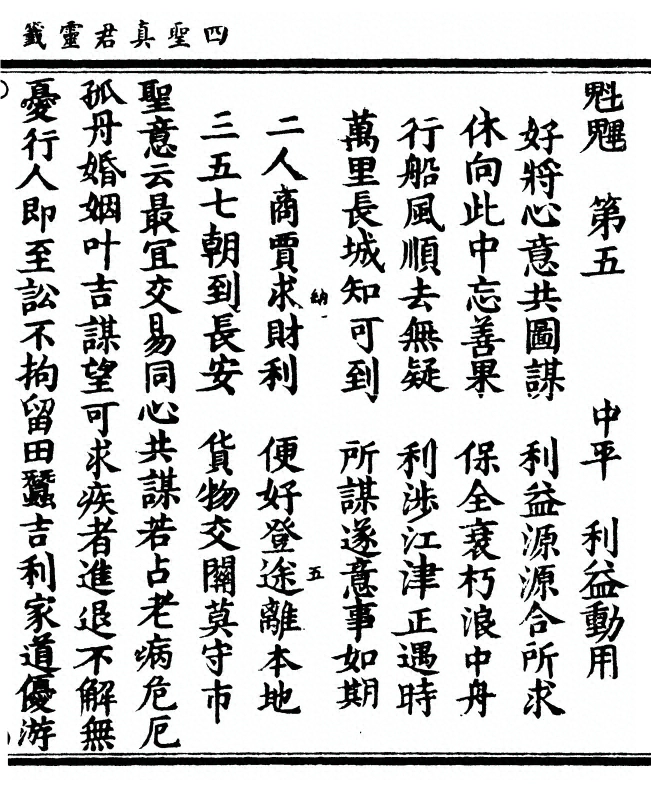 四聖真君靈籤
魁魓 第五 中平 利益動用
好將心意共圖謀 利益源源合所求
休向此中忘善果 保全衰朽浪中舟
行船風順去無疑 利涉江津正遇時
萬里長城知可到 所謀遂意事如期
二人商賈求財利 便好登途離本地
納 五
三五七朝到長安 貨物交關莫守市
聖意云最宜交易同心共謀若占老病危厄
孤丹婚姻叶吉謀望可求疾者進退不解無
憂行人即至訟不拘留田蠶吉利家道優游